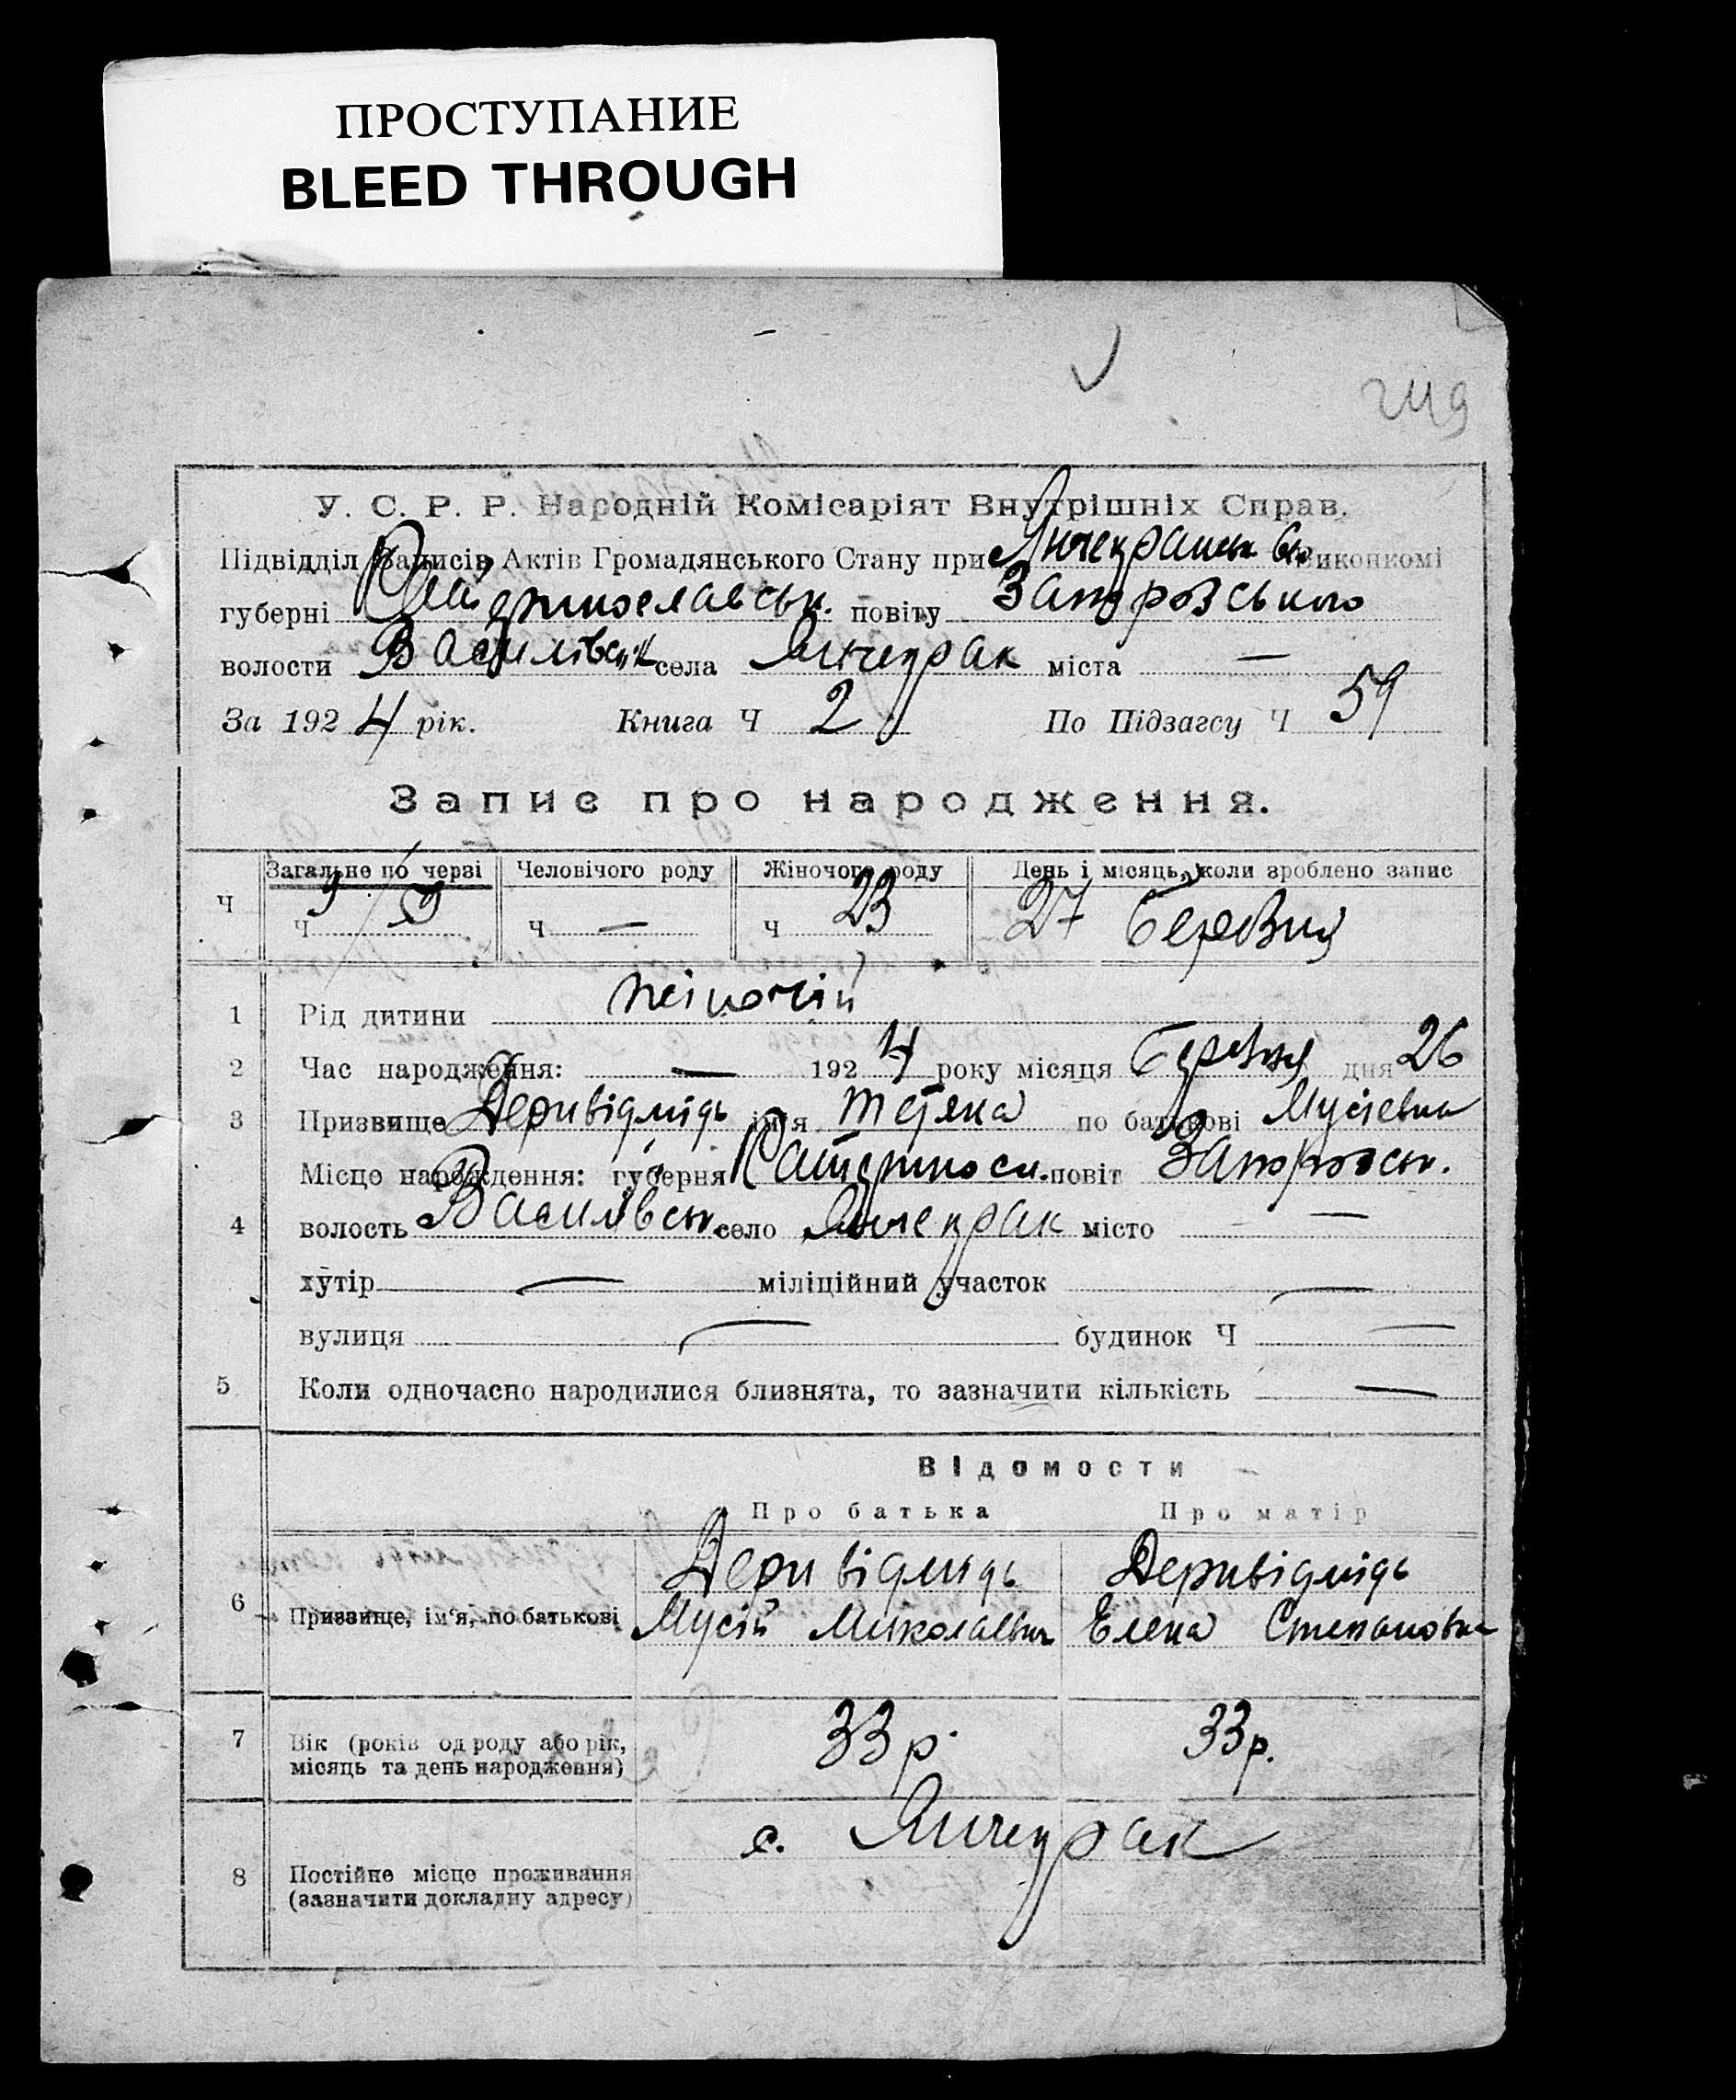 ПРОСТУПАНИЕ
BLEED THROUGH
У. С. Р. Р. Народній Комісаріят Внутрішніх Справ.
Підвідділ Записів Актів Громадянського Стану при Янчекрацьк. виконкомі
губерні Катеринославськ. повіту Запорозського
волости Василівськ села Янчекрак міста —
За 1924 рік. Книга Ч 2 По Підзагсу Ч 59
Запис про народження.
Загальне по черзі Человічого роду Жіночого роду День і місяць, коли зроблено запис
Ч ч ч — ч 23 27 Березня
1 Рід дитини жіночій
2 Час народження: — 1924 року місяця Березня дня 26
3 Призвище Деривідмідь ім'я Тетяна по батькові Мусіевна
Місце народження: губерня Катериносл. повіт Запорозськ.
4 волость Василівськ. село Янчекрак місто —
хутір — міліційний участок —
вулиця — будинок Ч —
5 Коли одночасно народилися близнята, то зазначити кількість —
Відомости
Про батька Про матір
Деривідмидь Деривідмідь
6 Призвище, ім'я, по батькові Мусій Миколаевич Елена Степановна
7 Вік (років од роду або рік, місяць та день народження) 33 р. 33 р.
с. Янчекрак
8 Постійне місце проживання
(зазначити докладну адресу)